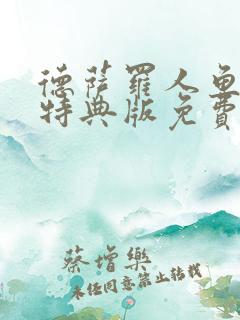 德萨罗人鱼
特典版免费
蔡增乐
未经同意禁止转载